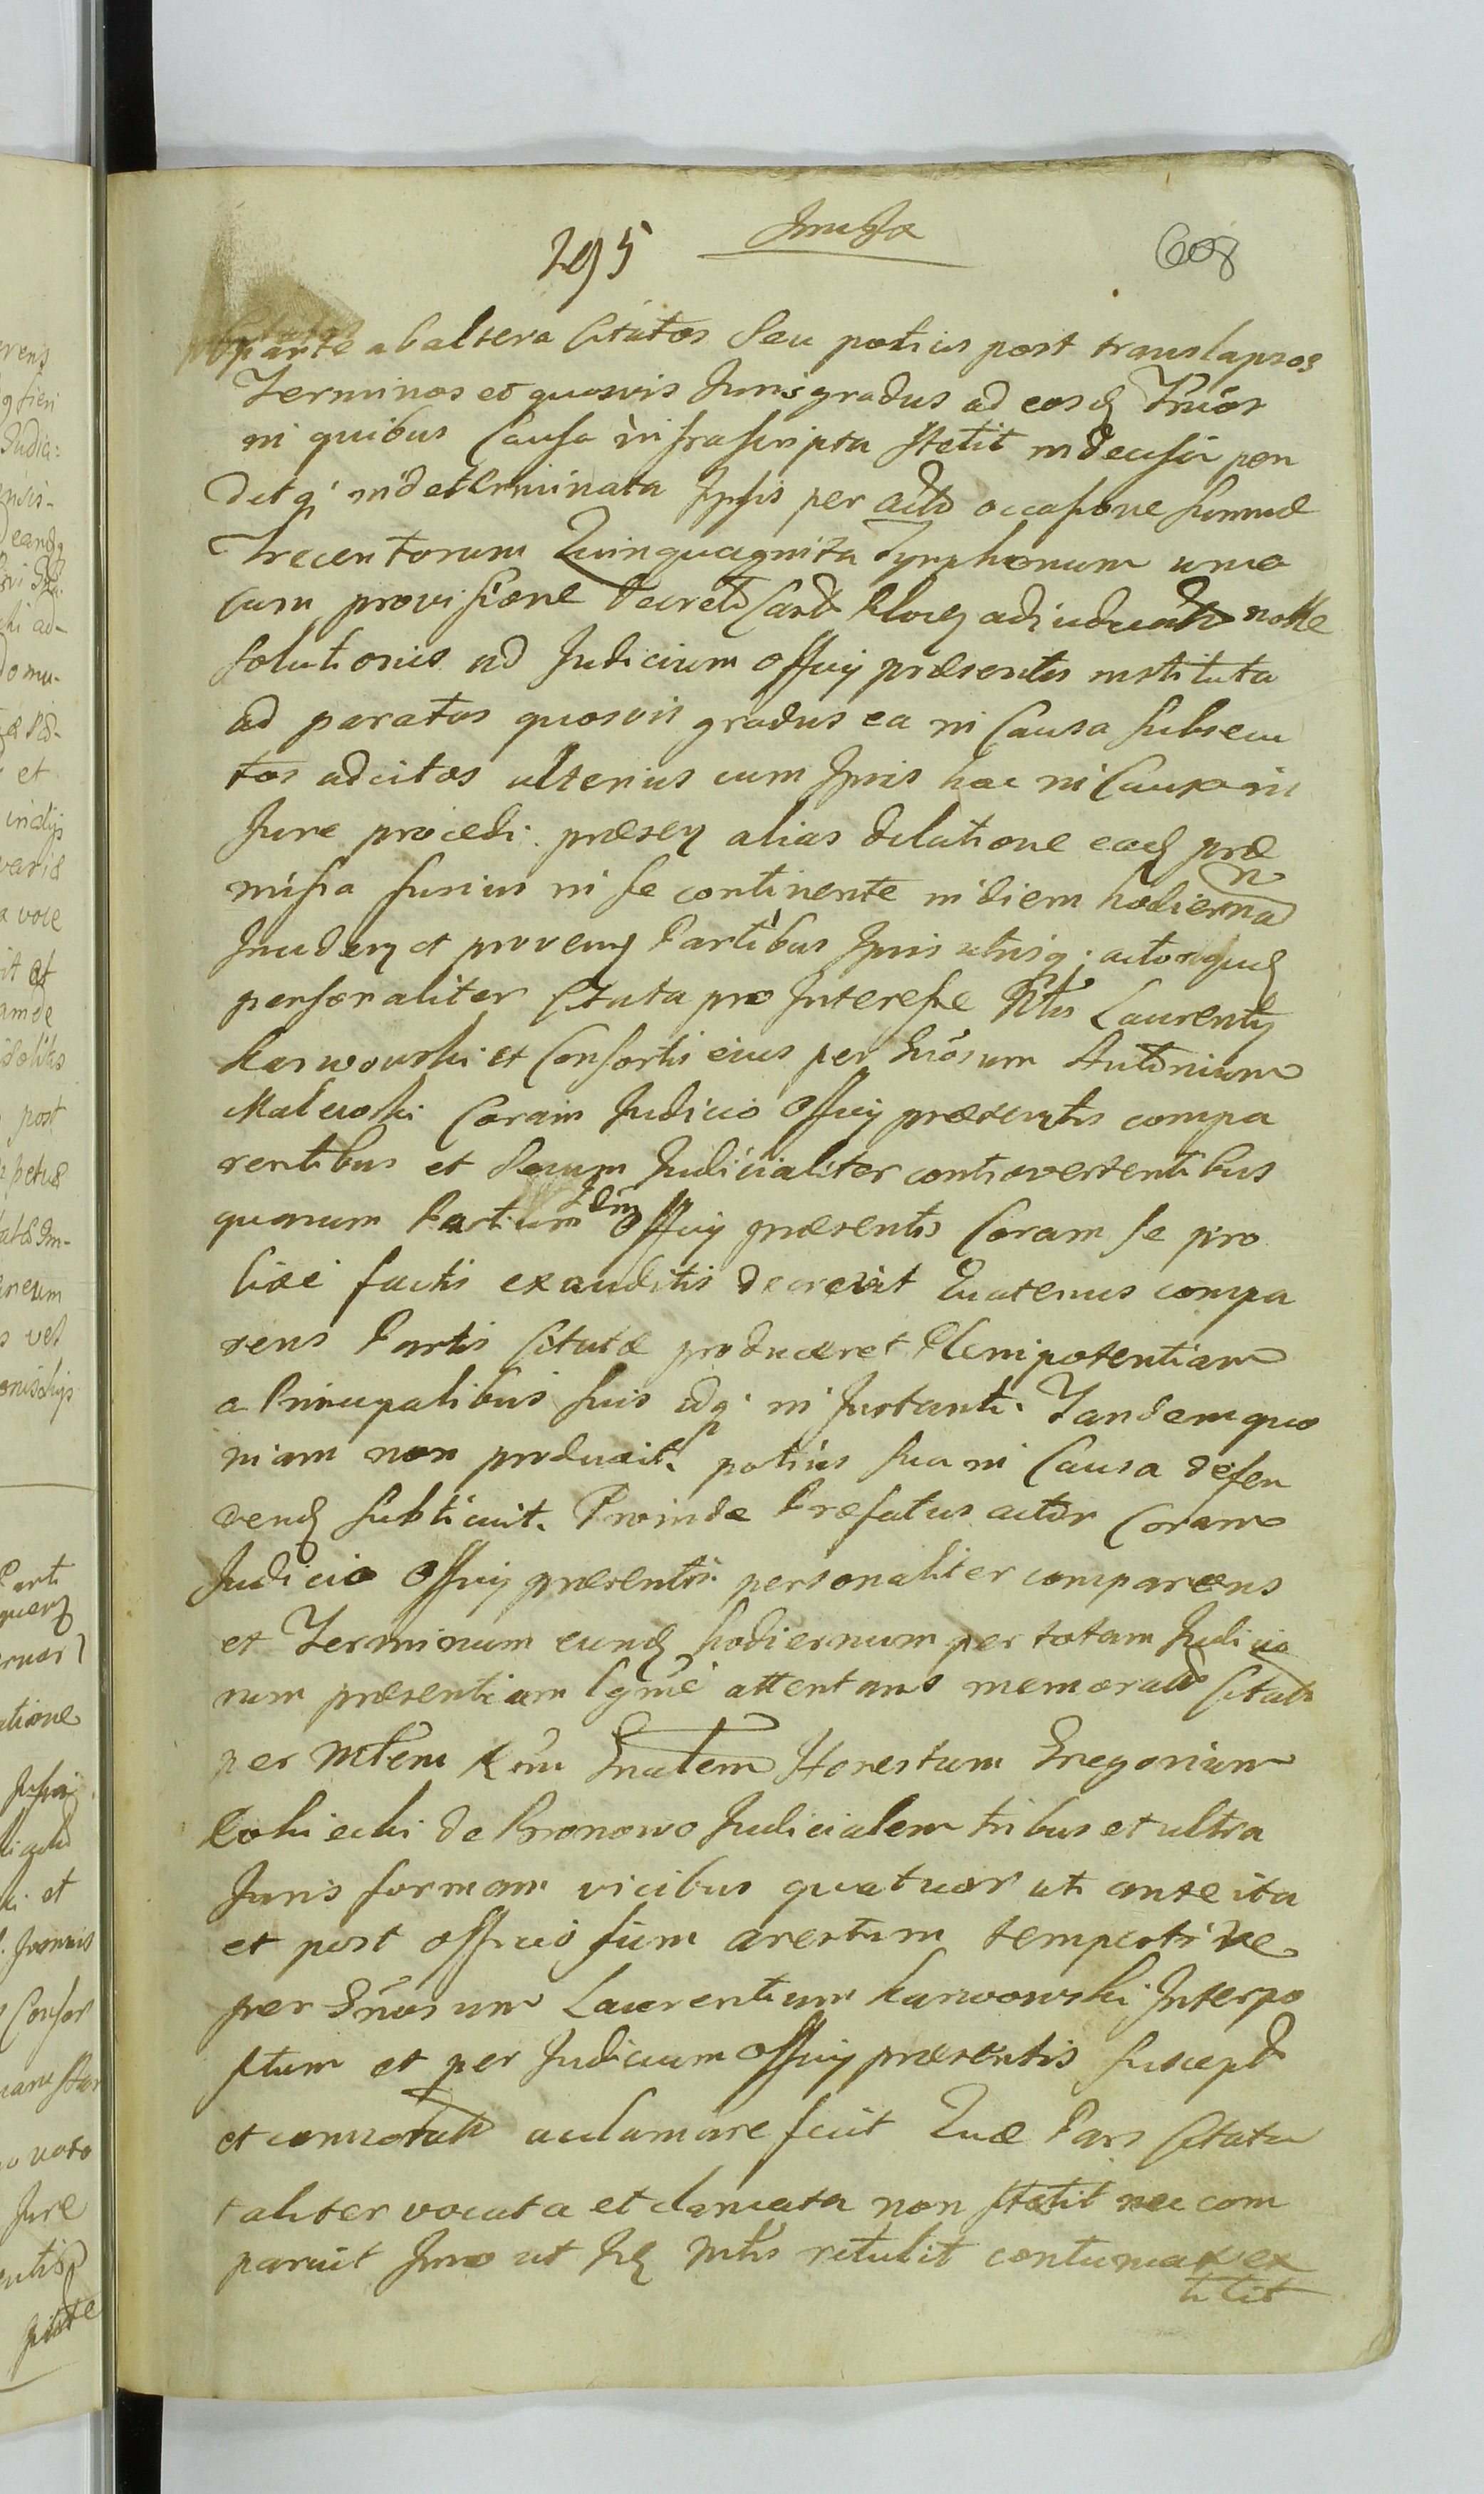 295
608
parte ab altera Citatos Seu potius post translapsos
Terminos et quosvis Juris gradus ad eosq Tñios
in quibus Causa infrascripta stetit indecisa pen
detq indeterminata Ipsis per actor occasione summæ
Trecentorum Quinquaginta Tymphonum una
cum provisione Decreto Cast adiudicat nosse
solutionis ad Judicium Officij præsentis instituta
ad paratos quosvis gradus ea in Causa subsecu
tos adcitos ulterius cum Ipsis hac in Causa in
Jure procedi. præsen alias dilatione eadq præ
missa fusius in se continente in diem hodierna
Inciden et proven Partibus Ipsis utrisq; actor quidq
personaliter Citata pro Interesse Laurentij
Karwowski et Consortis eius per Gñosum Antonium
Malewski Coram Judicio Officij præsentis compa
rentibus et Secum Judicialiter controvertentibus
quarum Partium Jdm Officij præsentis Coram se pro
lixe factis exauditis decrevit Quatenus compa
rens Partis Citatæ produceret Plenipotentiam
a Principalibus suis idq; in Instanti. Tandem quo
niam non produxit. potius sua in Causa defen
dendq subticuit. Proinde Præfatus actor Coram
Judicio Officij præsentis personaliter comparens
et Terminum eundq hodiernum per totam Judicio
rum præsentiam lgmè attentans memorato Citato
per Mtem Rñi Gnalem Honestum Gregorium
de Bronowo Judicialem tribus et ultra
Juris formam vicibus quatuor uti ante ita
et post officiosum arestum tempestive
per Gñosum Laurentium Karwowski Interpo
situm et per Judicium Officij præsentis suscept
et connotato aclamare fecit Quæ Pars Citata
taliter vocata et clamata non stetit nec com
paruit Imo ut Idq Mtis retulit contumax ex
titit